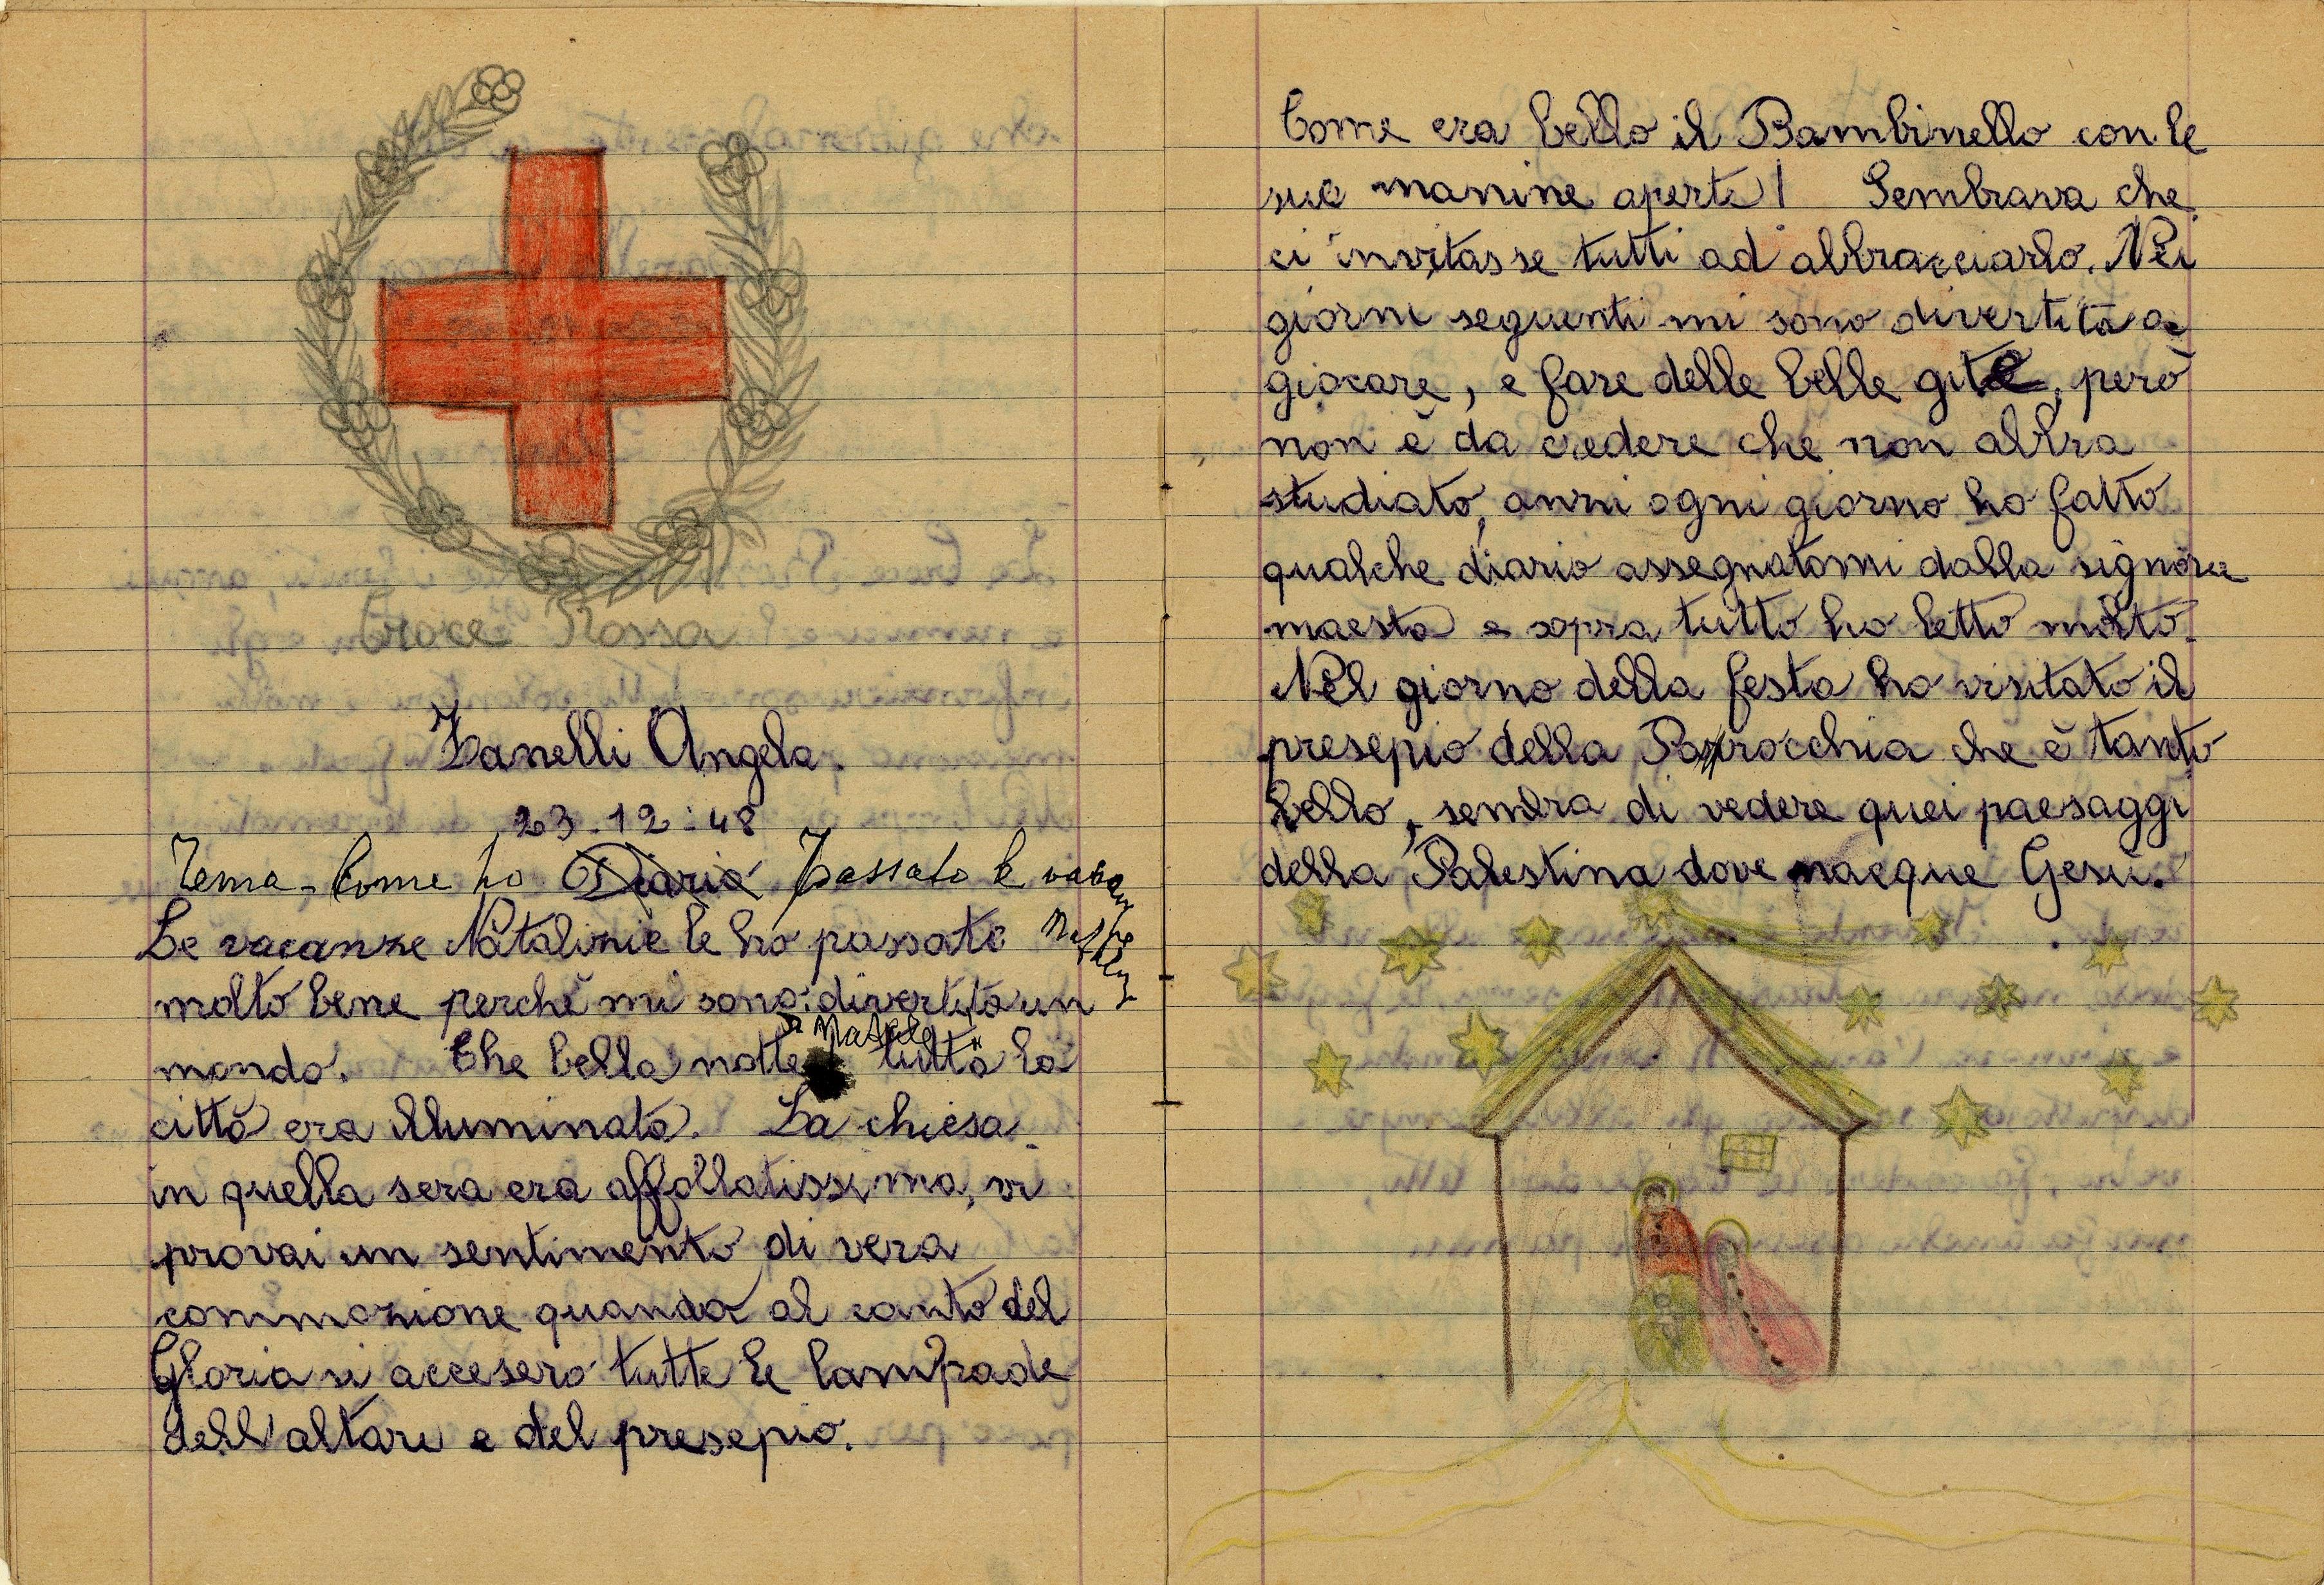 Croce Rossa
Zanelli Angela.
23.12.48
Tema - Come ho Diario passato le vacanze
Le vacanze Natalizie le ho passate
molto bene perchè mi sono divertita un
di Natale
mondo. Che bella notte tutta la
città era illuminata. La chiesa
in quella sera era affollatissima, vi
provai un sentimento di vera
commozione quando al canto del
Gloria si accesero tutte le lampade
dell'altare e del presepio.
Come era bello il Bambinello con le
sue manine aperte! Sembrava che
ci invitasse tutti ad abbracciarlo. Nei
giorni seguenti mi sono divertita a
giocare, e fare delle belle gite, però
non è da credere che non abbia
studiato, anzi ogni giorno ho fatto
qualche diario assegnatomi dalla signora
maesta e sopra tutto ho letto molto.
Nel giorno della festa ho visitato il
presepio della Parrocchia che è tanto
bello, sembra di vedere quei paesaggi
della Palestina dove nacque Gesù.